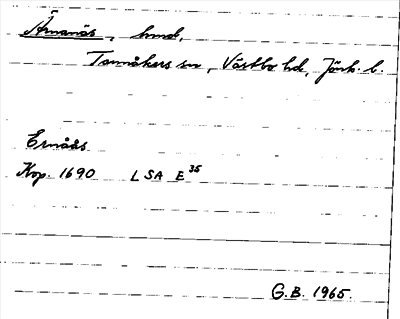 Ärnanäs, hmd,
Tannåkers sn, Västbo hd, Jönk. l.
Ernääs
Kop. 1690 LSA E 35
G.B. 1965.